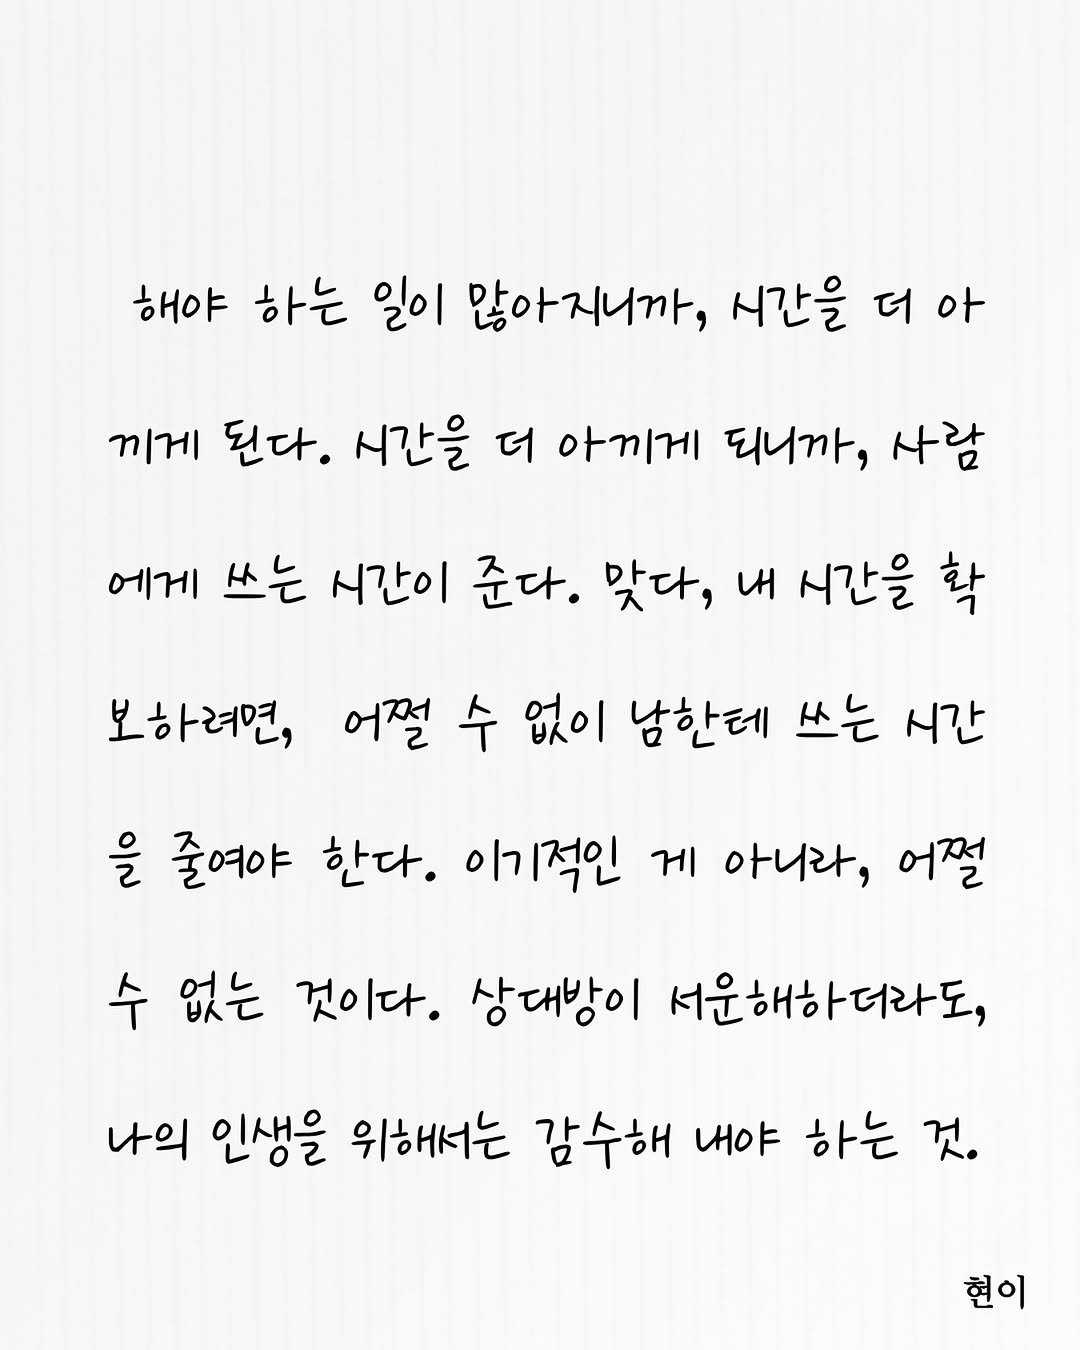 해야 하는 일이 많아지니까, 시간을 더 아
끼게 된다. 시간을 더 아끼게 되니까, 사람
에게 쓰는 시간이 준다. 맞다, 내 시간을 확
보하려면, 어쩔 수 없이 남한테 쓰는 시간
을 줄여야 한다. 이기적인 게 아니라, 어쩔
수 없는 것이다. 상대방이 서운해하더라도,
나의 인생을 위해서는 감수해 내야 하는 것.
현이